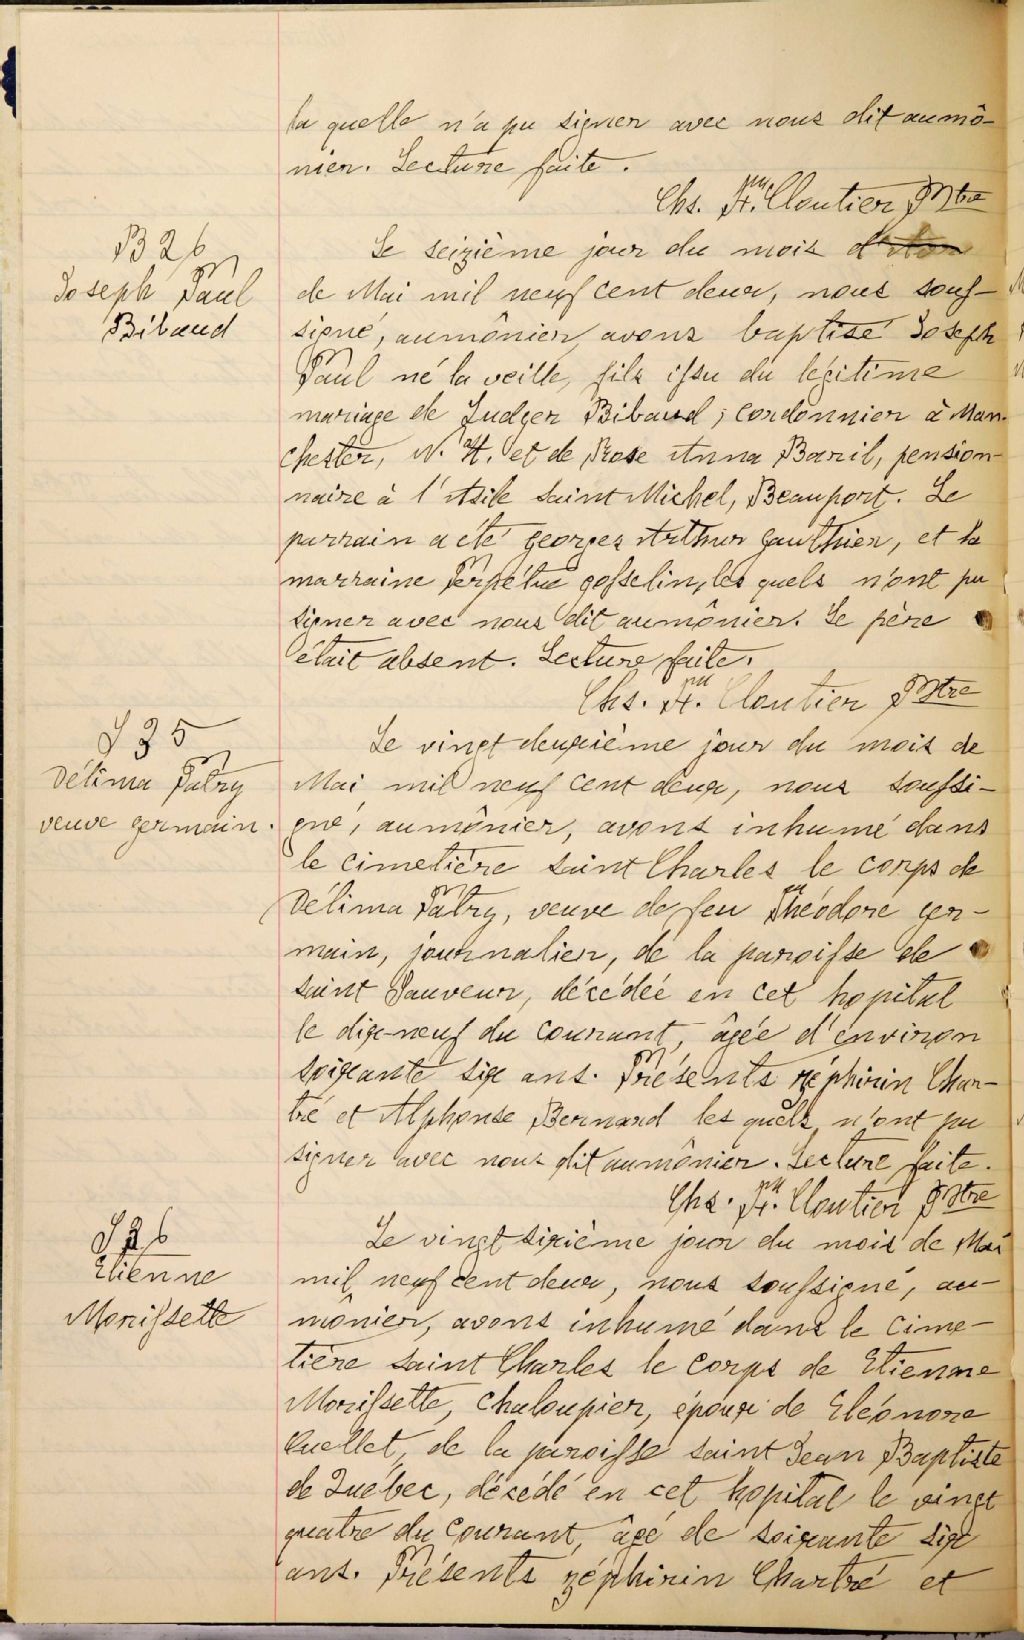 la quelle n'a pu signer avec nous dit aumô-
nier. Lecture faite.
Chs. H. Cloutier Ptre
B 26
Joseph Paul
Bibaud
Le seizième jour du mois
de Mai mil neuf cent deux, nous sous-
signé, aumônier, avons baptisé Joseph
Paul né la veille, fils issu du légitime
mariage de Ludger Bibaud, cordonnier à Man-
chester, N. H. et de Rose Anna Baril, pension-
naire à l'Asile Saint Michel, Beauport. Le
parrain a été Georges Arthur Gauthier, et la
marraine Perpétue Gosselin, les quels n'ont pu
signer avec nous dit aumônier. Le père
était absent. Lecture faite.
Chs. H. Cloutier Ptre
S 35
Délima Patry
veuve Germain.
Le vingt deuxième jour du mois de
Mai mil neuf cent deux, nous soussi-
gné, aumônier, avons inhumé dans
le cimetière saint Charles le corps de
Délima Patry, veuve de feu Théodore Ger-
main, journalier, de la paroisse de
saint Sauveur, décédée en cet hopital
le dix-neuf du courant, âgée d'environ
soixante six ans. Présents Zéphirin Char-
tré et Alphonse Bernard les quels n'ont pu
signer avec nous dit aumônier. Lecture faite.
Chs. H. Cloutier Ptre
S 36
Etienne
Morissette
Le vingt sixième jour du mois de Mai
mil neuf cent deux, nous soussigné, au-
mônier, avons inhumé dans le cime-
tière saint Charles le corps de Etienne
Morissette, chaloupier, époux de Eléonore
Ouellet, de la paroisse saint Jean Baptiste
de Québec, décédé en cet hopital le vingt
quatre du courant, âgé de soixante six
ans. Présents Zéphirin Chartré et